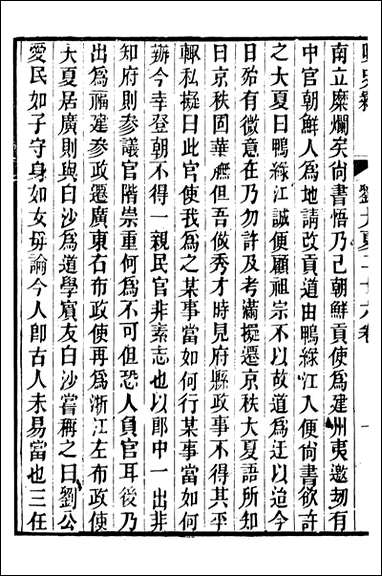 劉大夏二十六卷
南立糜爛矣尚書悟乃已朝鮮貢使爲建州夷邀刼有
中官朝鮮人爲地請改貢道由鴨綠江入便尚書欲許
之大夏曰鴨綠江誠便顧祖宗不以故道爲迂以迨今
日殆有微意在乃勿許及考滿擬遷京秩大夏語所知
曰京秩固華膴但吾俊秀才時見府縣政事不得其平
輙私擬曰此官使我爲之某事當如何行某事當如何
辦今幸登朝不得一親民官非素志也以郎中一出非
知府則參議官階崇重何爲不可但恐人負官耳後乃
出爲福建參政遷廣東右布政使再爲浙江左布政使
大夏居廣則與白沙爲道學賓友白沙嘗稱之曰劉公
愛民如子守身如女毋論今人卽古人未易當也三任